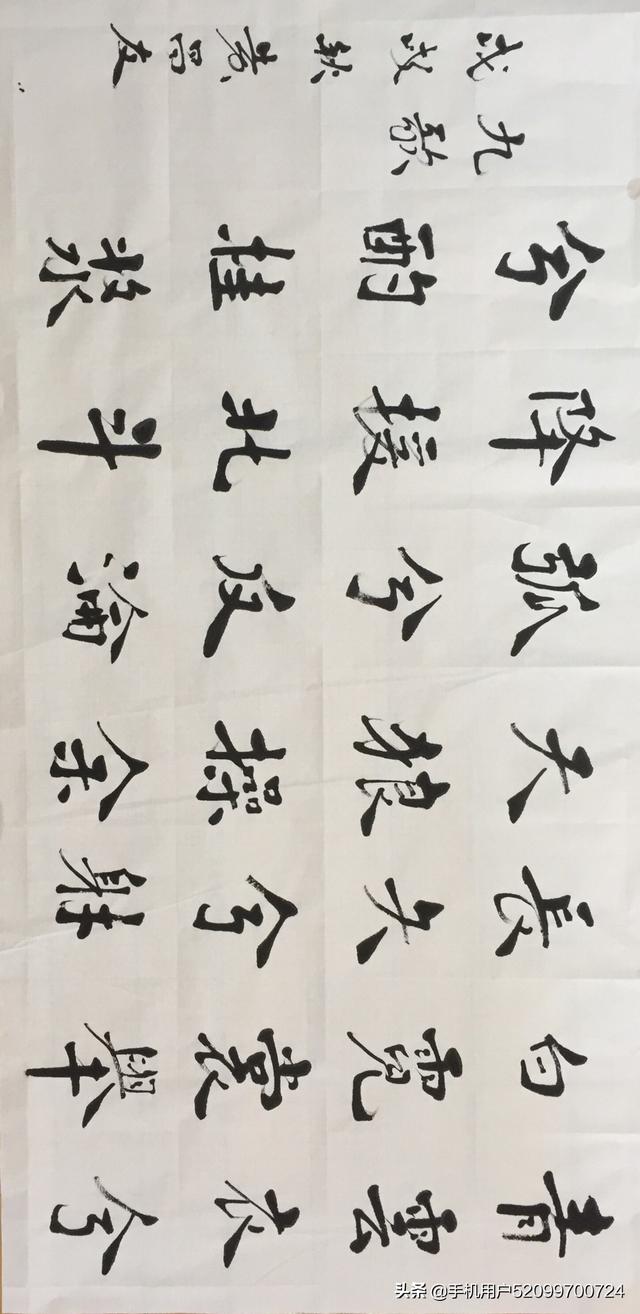 青雲衣兮
白霓裳舉
長矢兮射
天狼操余
弧兮反淪
降援北斗
兮酌桂漿
九歌
戊戌秋黄留友
头条 @手机用户52099700724